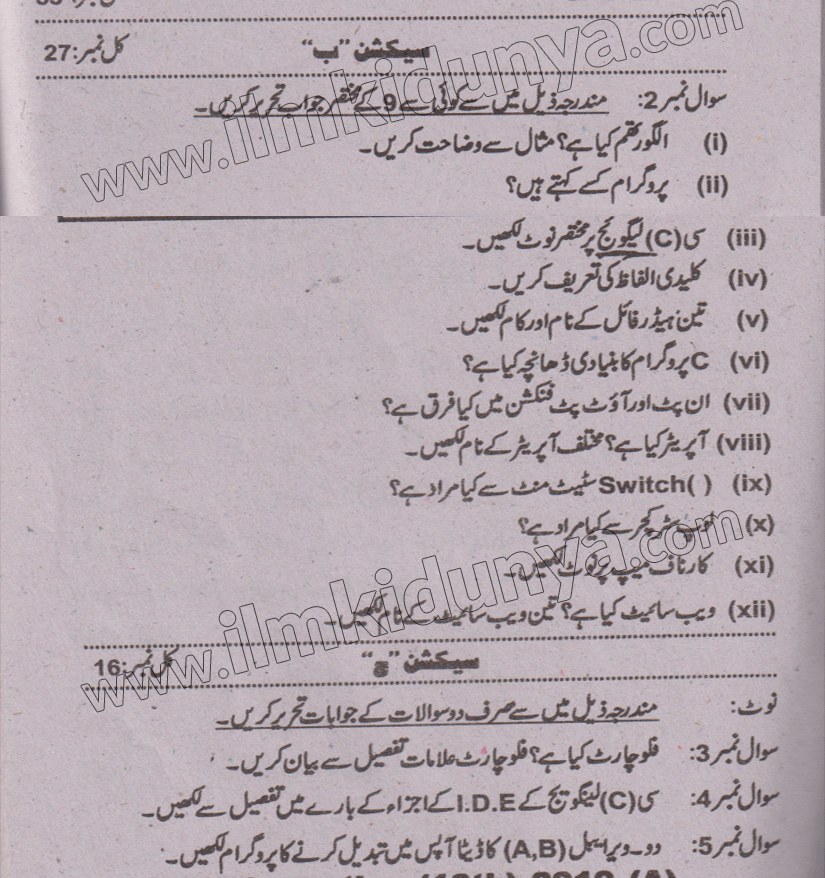 سیکشن "ب" کل نمبر:27
سوال نمبر 2: مندرجہ ذیل میں سے کوئی سے 9 کے مختصر جواب تحریر کریں۔
(i) الگورتھم کیا ہے؟ مثال سے وضاحت کریں۔
(ii) پروگرام کسے کہتے ہیں؟
(iii) سی (C) لیگوئج پر مختصر نوٹ لکھیں۔
(iv) کلیدی الفاظ کی تعریف کریں۔
(v) تین ہیڈر فائل کے نام اور کام لکھیں۔
(vi) C پروگرام کا بنیادی ڈھانچہ کیا ہے؟
(vii) ان پٹ اور آؤٹ پٹ فنکشن میں کیا فرق ہے؟
(viii) آپریٹر کیا ہے؟ مختلف آپریٹر کے نام لکھیں۔
(ix) Switch( ) سٹیٹ منٹ سے کیا مراد ہے؟
(x) لوپ سٹرکچر سے کیا مراد ہے؟
(xi) کارناف میپ پر نوٹ لکھیں۔
(xii) ویب سائیٹ کیا ہے؟ تین ویب سائیٹ کے نام لکھیں۔
سیکشن "ج" کل نمبر:16
نوٹ: مندرجہ ذیل میں سے صرف دو سوالات کے جوابات تحریر کریں۔
سوال نمبر 3: فلو چارٹ کیا ہے؟ فلو چارٹ علامات تفصیل سے بیان کریں۔
سوال نمبر 4: سی (C) لینگویج کے I.D.E کے اجزاء کے بارے میں تفصیل سے لکھیں۔
سوال نمبر 5: دو۔ویرایبل (A,B) کا ڈیٹا آپس میں تبدیل کرنے کا پروگرام لکھیں۔
www.ilmkidunya.com
www.ilmkidunya.com